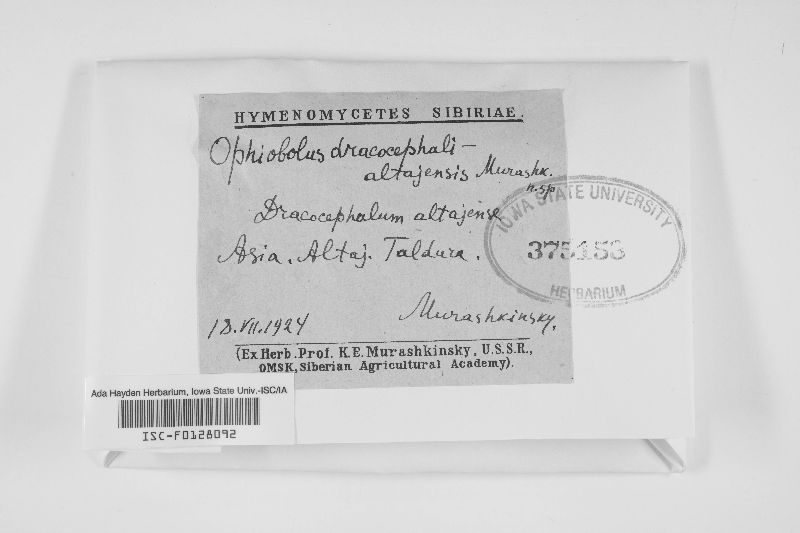 HYMENOMYCETES SIBIRIAE.
Ophiobolus dracocephali-
altajensis Murashk.
n.sp
Dracocephalum altajense
Asia. Altaj. Taldura.
18.VII.1924
Murashkinsky.
(Ex Herb. Prof. K.E. Murashkinsky, U.S.S.R.,
OMSK, Siberian Agricultural Academy).
IOWA STATE UNIVERSITY
375153
HERBARIUM
Ada Hayden Herbarium, Iowa State Univ.-ISC/IA
ISC-F0128092